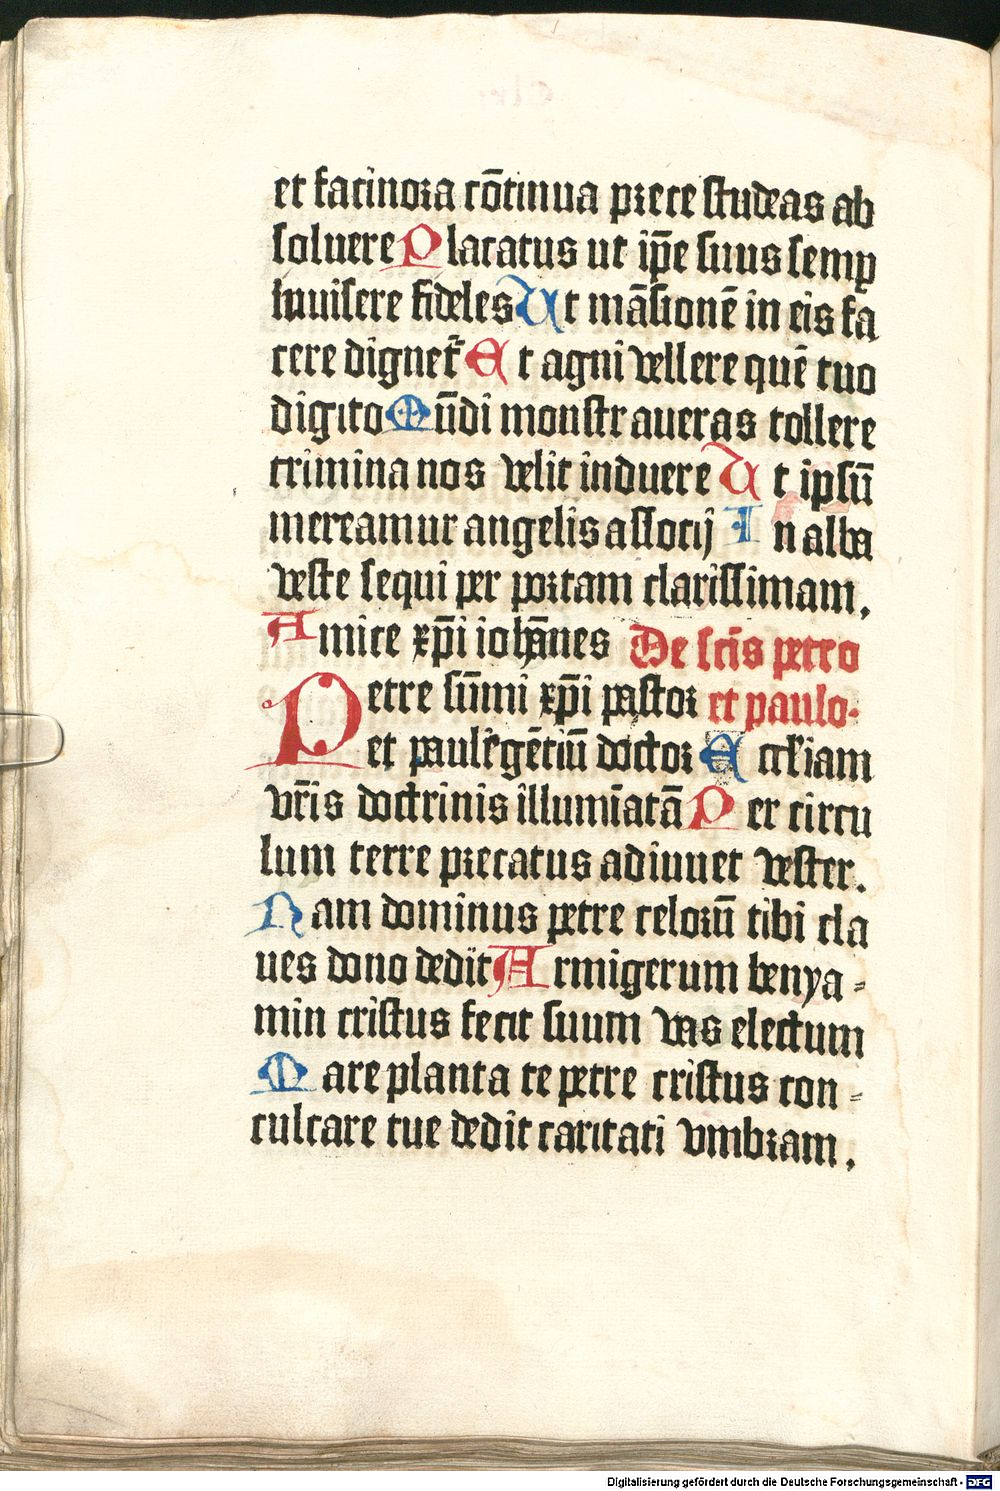 et facinora cōtinua prece studeas ab
soluere Placatus ut ip̄e suus semꝑ
inuisere fideles Ut māsionē in eis fa
cere dignet᷑ Et agni vellere quē tuo
digito Mūdi monstraueras tollere
crimina nos velit induere Ut ipsū
mereamur angelis associj In alba
veste sequi per portam clarissimam.
Amice xp̄i ioh̄annes De sc̄is petro
Petre sūmi xp̄i pastor et paulo.
et paule gētiū doctor Eccl̄iam
vr̄is doctrinis illumīatā Per circu
lum terre precatus adiuuet vester.
Nam dominus petre celorū tibi cla
ues dono dedit Armigerum benya-
min cristus fecit suum vas electum
Mare planta te petre cristus con-
culcare tue dedit caritati vmbram.
Digitalisierung gefördert durch die Deutsche Forschungsgemeinschaft - DFG